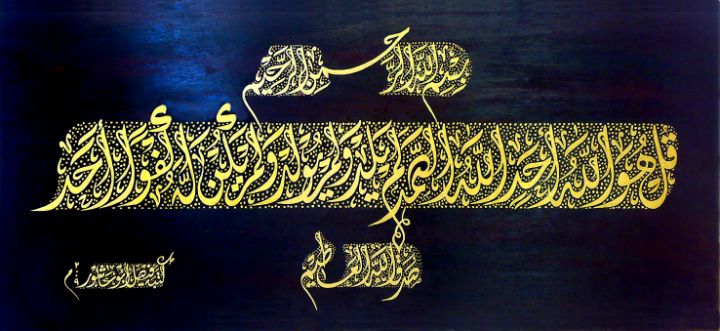 بسم الله الرحمن الرحيم
قل هو الله أحد الله الصمد لم يلد ولم يولد ولم يكن له كفوا أحد
صدق الله العظيم
كتبه